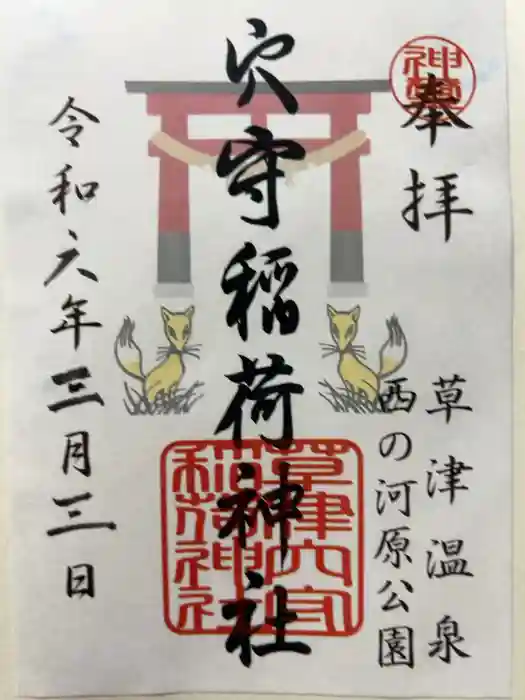 奉拝
草津温泉
西の河原公園
穴守稲荷神社
草津穴守
稲荷神社
令和六年三月三日